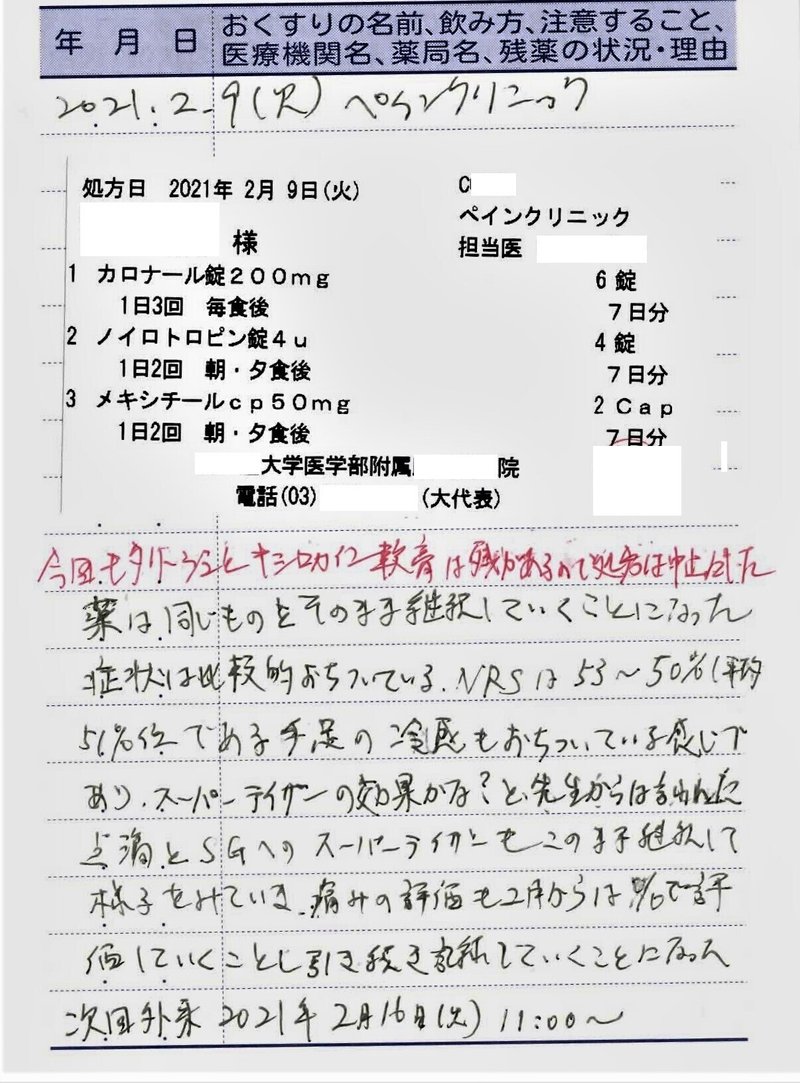 年 月 日 おくすりの名前、飲み方、注意すること、
医療機関名、薬局名、残薬の状況・理由
2021.2.9(火) ペインクリニック
処方日 2021年 2月 9日(火) C
ペインクリニック
様 担当医
1 カロナール錠200mg 6 錠
1日3回 毎食後 7日分
2 ノイロトロピン錠4u 4 錠
1日2回 朝・夕食後 7日分
3 メキシチールcp50mg 2 Cap
1日2回 朝・夕食後 7日分
大学医学部附属 院
電話(03) (大代表)
今回も と キシロカイン軟膏は残があるので処方は中止した
薬は同じものをそのまま継続していくことになった
症状は比較的おちついている。NRSは53～50%(平均
51%位である手足の冷感もおちついている感じで
あり、スーパーライザーの効果かな?と先生からは言われた
点滴とSGへのスーパーライザーもこのまま継続して
様子をみていき、痛みの評価も2月からは%で評
価していくことし引き続き記録していくことになった
次回外来 2021年2月16日(火) 11:00～